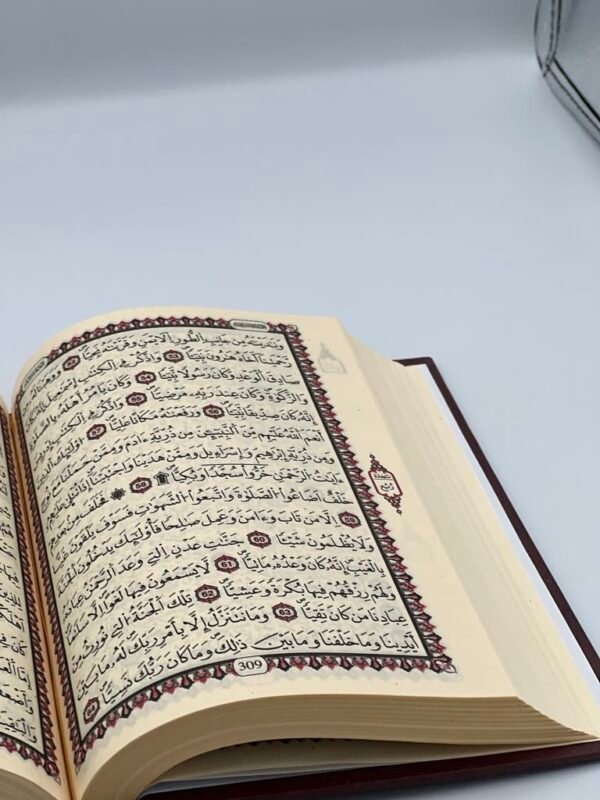 وَنَٰدَيْنَٰهُ مِن جَانِبِ ٱلطُّورِ ٱلْأَيْمَنِ وَقَرَّبْنَٰهُ نَجِيًّا 52 وَوَهَبْنَا لَهُۥ
مِن رَّحْمَتِنَآ أَخَاهُ هَٰرُونَ نَبِيًّا 53 وَٱذْكُرْ فِى ٱلْكِتَٰبِ إِسْمَٰعِيلَ إِنَّهُۥ كَانَ
صَادِقَ ٱلْوَعْدِ وَكَانَ رَسُولًا نَّبِيًّا 54 وَكَانَ يَأْمُرُ أَهْلَهُۥ بِٱلصَّلَوٰةِ
وَٱلزَّكَوٰةِ وَكَانَ عِندَ رَبِّهِۦ مَرْضِيًّا 55 وَٱذْكُرْ فِى ٱلْكِتَٰبِ إِدْرِيسَ
إِنَّهُۥ كَانَ صِدِّيقًا نَّبِيًّا 56 وَرَفَعْنَٰهُ مَكَانًا عَلِيًّا 57 أُو۟لَٰٓئِكَ ٱلَّذِينَ
أَنْعَمَ ٱللَّهُ عَلَيْهِم مِّنَ ٱلنَّبِيِّۦنَ مِن ذُرِّيَّةِ ءَادَمَ وَمِمَّنْ حَمَلْنَا مَعَ نُوحٍ
وَمِن ذُرِّيَّةِ إِبْرَٰهِيمَ وَإِسْرَٰٓءِيلَ وَمِمَّنْ هَدَيْنَا وَٱجْتَبَيْنَآ إِذَا تُتْلَىٰ عَلَيْهِمْ
ءَايَٰتُ ٱلرَّحْمَٰنِ خَرُّوا۟ سُجَّدًا وَبُكِيًّا ۩ 58 ۞ فَخَلَفَ مِنۢ بَعْدِهِمْ
خَلْفٌ أَضَاعُوا۟ ٱلصَّلَوٰةَ وَٱتَّبَعُوا۟ ٱلشَّهَوَٰتِ فَسَوْفَ يَلْقَوْنَ غَيًّا
59 إِلَّا مَن تَابَ وَءَامَنَ وَعَمِلَ صَٰلِحًا فَأُو۟لَٰٓئِكَ يَدْخُلُونَ ٱلْجَنَّةَ
وَلَا يُظْلَمُونَ شَيْـًٔا 60 جَنَّٰتِ عَدْنٍ ٱلَّتِى وَعَدَ ٱلرَّحْمَٰنُ عِبَادَهُۥ
بِٱلْغَيْبِ إِنَّهُۥ كَانَ وَعْدُهُۥ مَأْتِيًّا 61 لَّا يَسْمَعُونَ فِيهَا لَغْوًا إِلَّا سَلَٰمًا
وَلَهُمْ رِزْقُهُمْ فِيهَا بُكْرَةً وَعَشِيًّا 62 تِلْكَ ٱلْجَنَّةُ ٱلَّتِى نُورِثُ مِنْ
عِبَادِنَا مَن كَانَ تَقِيًّا 63 وَمَا نَتَنَزَّلُ إِلَّا بِأَمْرِ رَبِّكَ لَهُۥ مَا بَيْنَ
أَيْدِينَا وَمَا خَلْفَنَا وَمَا بَيْنَ ذَٰلِكَ وَمَا كَانَ رَبُّكَ نَسِيًّا 64
309